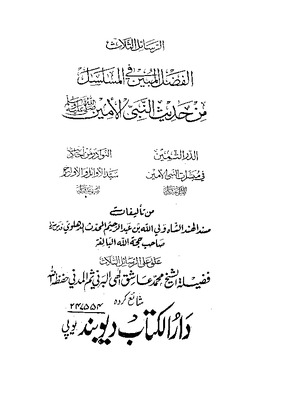 الرسائل الثلاث
الفضل المبين في المسلسل
من حديث النبي الأمين ﷺ
الدر الثمين
في مبشرات النبي الأمين
النوادر من أحاديث
سيد الأوائل والأواخر
من تأليفات
مسند الهند الشاه ولي الله بن عبد الرحيم المحدث الدهلوي
صاحب حجة الله البالغة
علق على الرسائل الثلاث
فضيلة الشيخ محمد عاشق إلهي البرني ثم المدني حفظه الله
شائع کرده
دار الکتاب دیوبند یوپی
۲۴۷۵۵۴